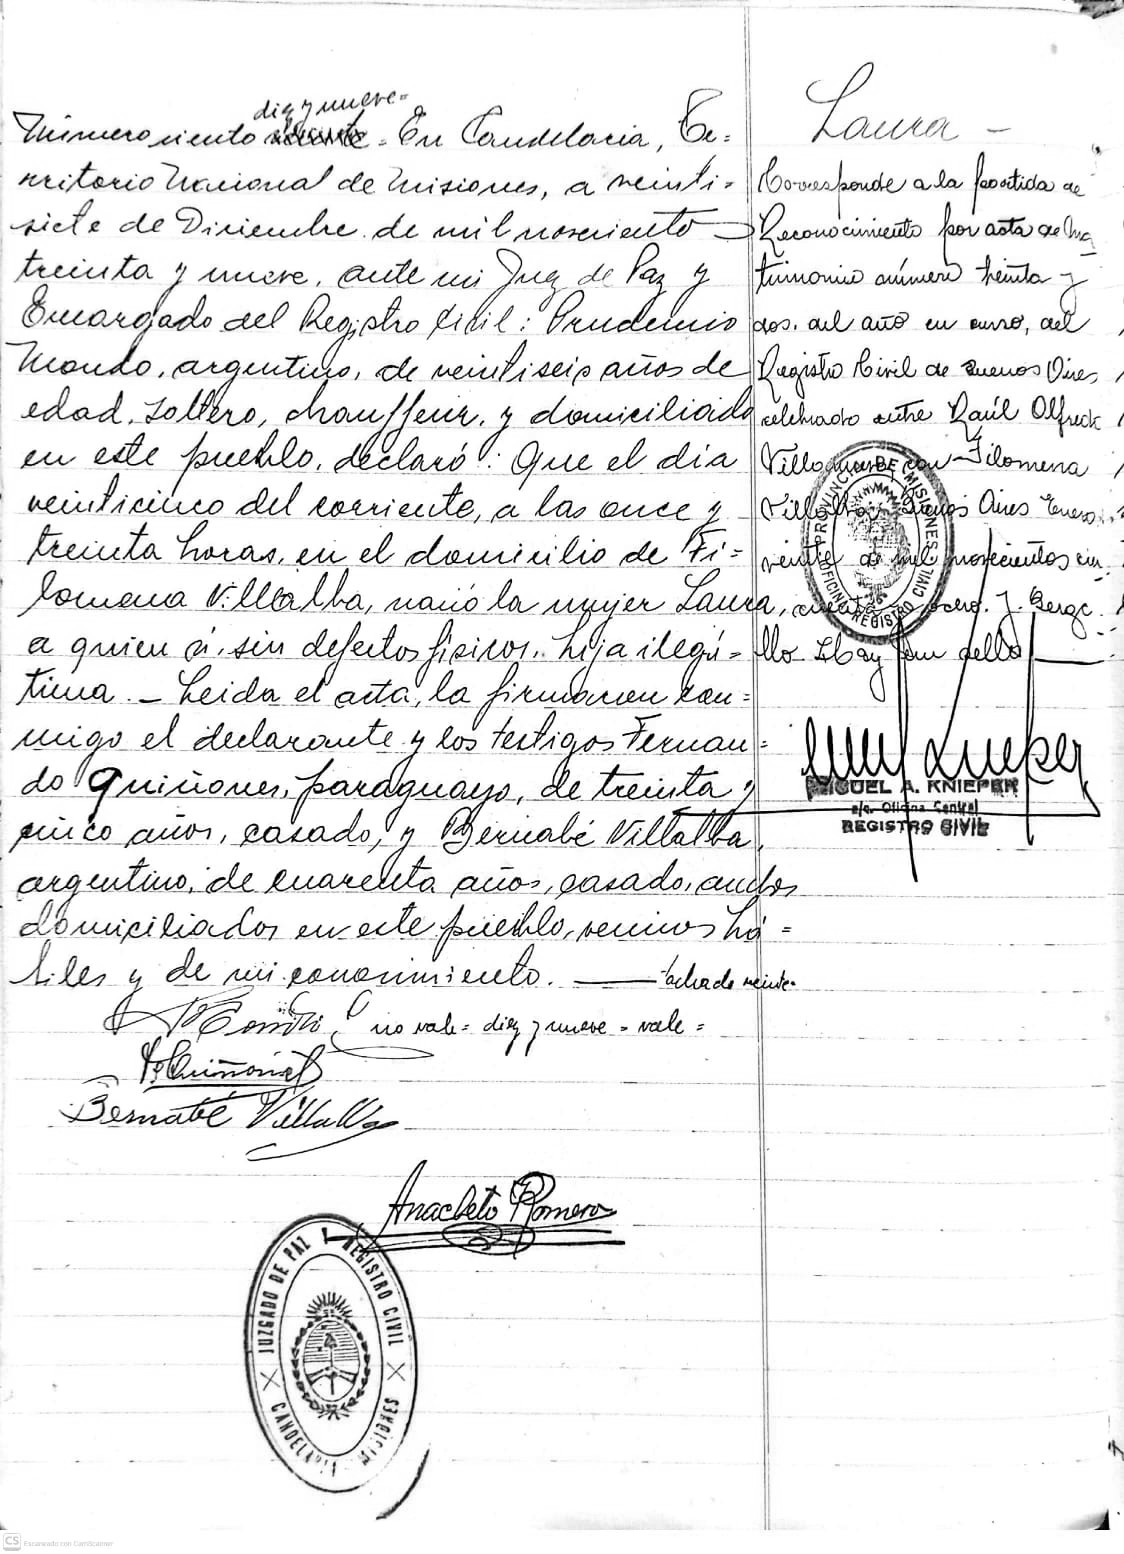 diez y nueve =
Número ciento veinte = En Candelaria, Te=
rritorio Nacional de Misiones, a veinti=
siete de Diciembre de mil noveciento
treinta y nueve, ante mi Juez de Paz y
Encargado del Registro Civil: Prudencio
, argentino, de veintiseis años de
edad, soltero, chauffeur, y domiciliado
en este pueblo, declaró: Que el día
veinticinco del corriente, a las once y
treinta horas, en el domicilio de Fi=
lomena Villalba, nació la mujer Laura,
a quien ví, sin defectos físicos, hija ilegí=
tima. — Leida el acta, la firmaron con=
migo el declarante y los testigos Fernan=
do Quiñones, paraguayo, de treinta y
cinco años, casado, y Bernabé Villalba,
argentino, de cuarenta años, casado, ambos
domiciliados en este pueblo, vecinos há=
biles y de mi conocimiento. — tachado veinte=
no vale= diez y nueve = vale=
Quiñones
Bernabé Villalba
Anacleto Romero
JUZGADO DE PAZ Y REGISTRO CIVIL
CANDELARIA - MISIONES
Laura —
Corresponde a la partida de
Reconocimiento por acta de Ma-
trimonio número treinta y
dos, del año en curso, del
Registro Civil de Buenos Aires,
celebrado entre Raúl Alfredo
con Filomena
Villalba. Buenos Aires Enero
veinte de mil novecientos cin-
cuenta y ocho. J.
llo. Hay un sello —
PROVINCIA DE MISIONES
OFICINA REGISTRO CIVIL
MIGUEL A. KNIEPER
a/c. Oficina Central
REGISTRO CIVIL
CS Escaneado con CamScanner